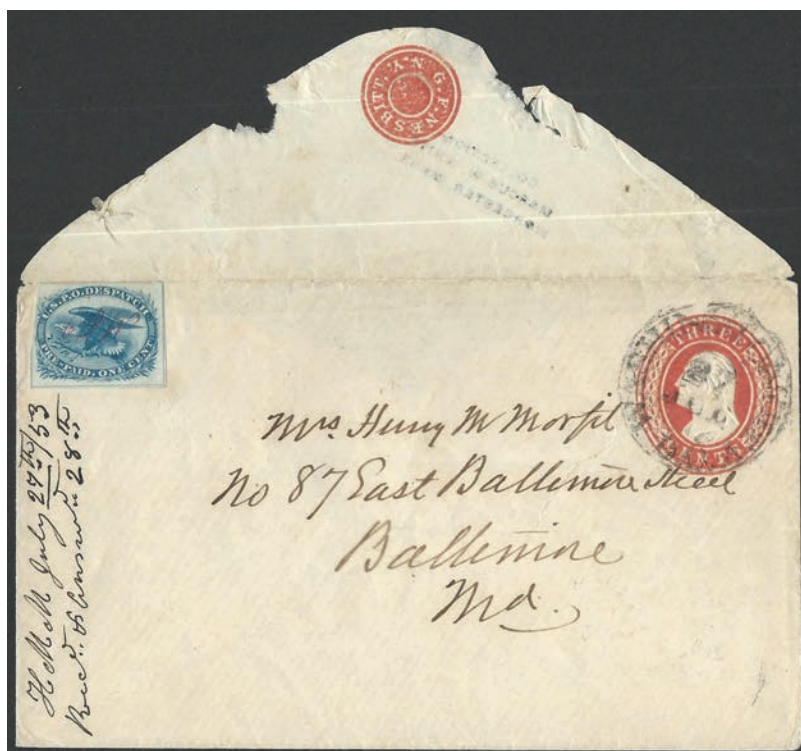 G.F. NESBITT. N.Y.
U.S.P.O. DESPATCH
PRE-PAID. ONE CENT
THREE
CENTS
Mrs Henry M Morfit
No 87 East Baltimore Street
Baltimore
Md.
H M M July 27th/53
Recd. & Answrd 28th